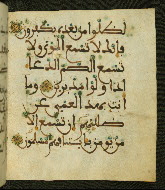 لظلوا من بعده يكفرون
فإنك لا تسمع الموتى ولا
تسمع الصم الدعاء
إذا ولوا مدبرين وما
أنت بهد العمي عن
ضللتهم إن تسمع إلا
من يومن بـايتنا فهم مسلمون